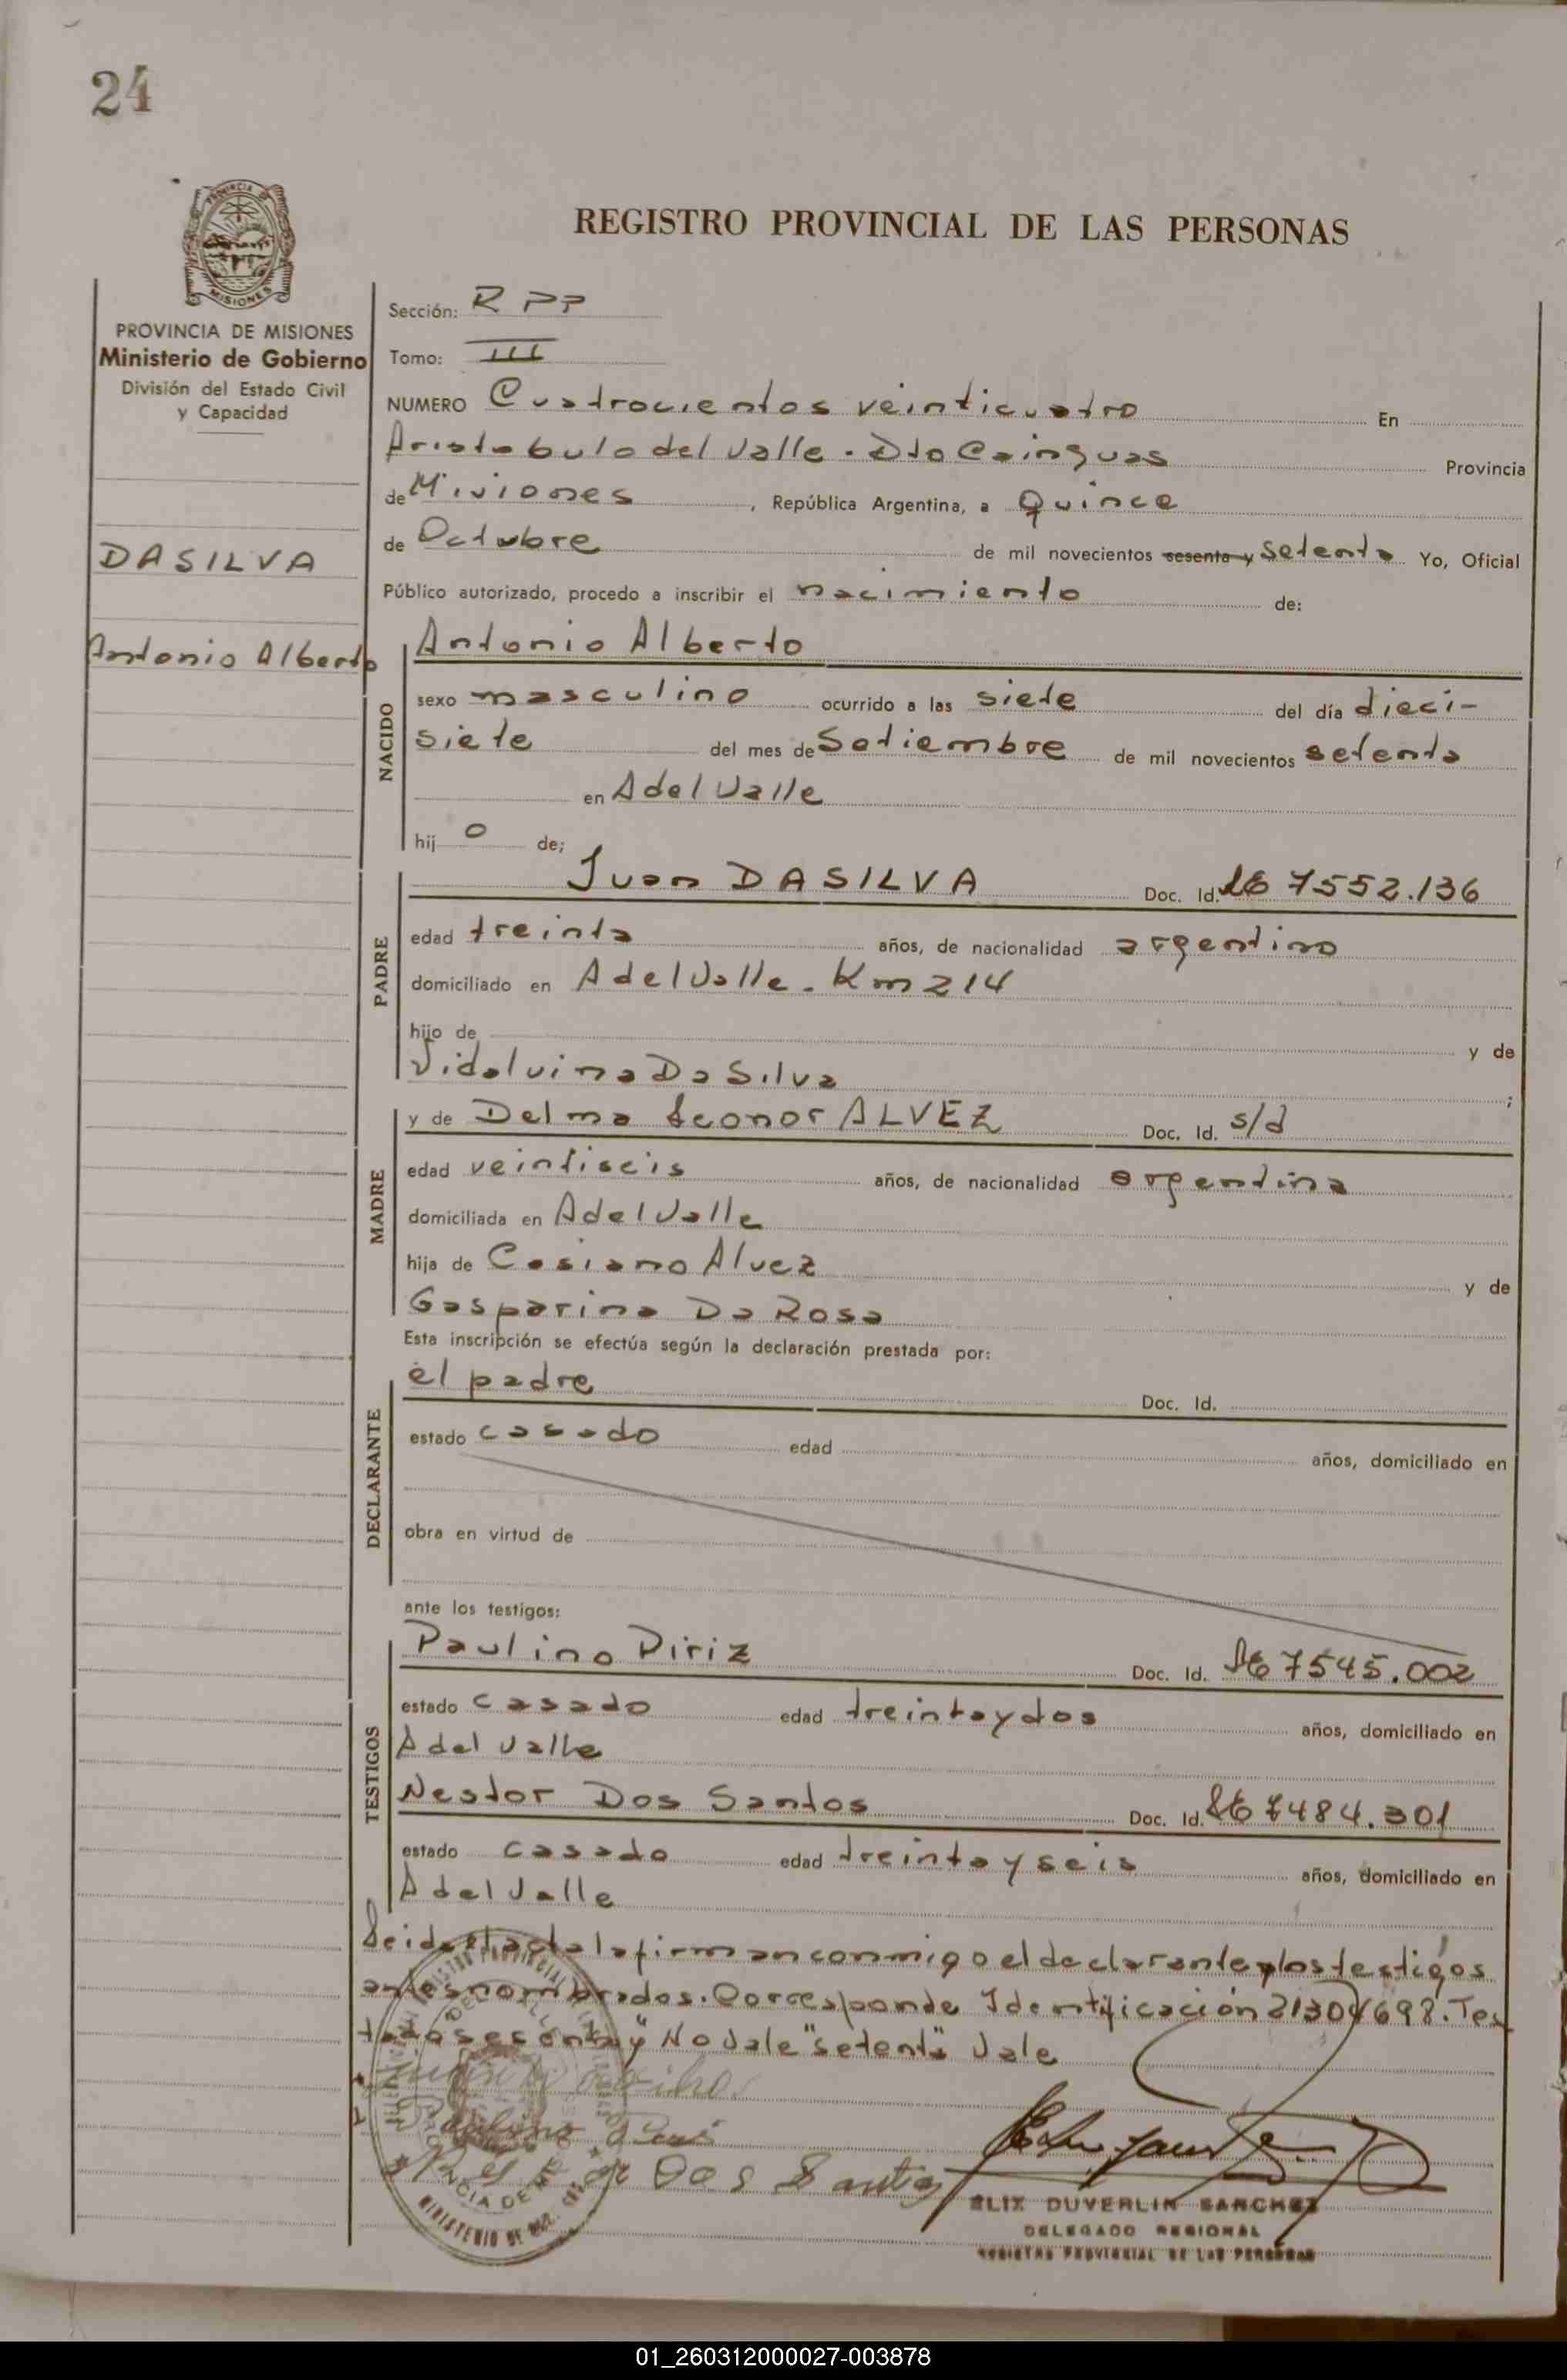 24
REGISTRO PROVINCIAL DE LAS PERSONAS
PROVINCIA DE MISIONES
Ministerio de Gobierno
División del Estado Civil
y Capacidad
DASILVA
Antonio Alberto
Sección: R P P
Tomo: III
NUMERO Cuatrocientos veinticuatro En
Aristobulo del Valle - Dto Cainguas Provincia
de Misiones, República Argentina, a Quince
de Octubre de mil novecientos sesenta y Setenta Yo, Oficial
Público autorizado, procedo a inscribir el nacimiento de:
NACIDO
Antonio Alberto
sexo masculino ocurrido a las siete del día dieci-
siete del mes de Setiembre de mil novecientos setenta
en A del Valle
hij o de;
PADRE
Juan DASILVA Doc. Id. LE 7552.136
edad treinta años, de nacionalidad argentino
domiciliado en A del Valle - Km 214
hijo de y de
Vidalvina Da Silva ;
MADRE
y de Delma Leonor ALVEZ Doc. Id. s/d
edad veintiseis años, de nacionalidad argentina
domiciliada en A del Valle
hija de Casiano Alvez y de
Gasparina Da Rosa
Esta inscripción se efectúa según la declaración prestada por:
DECLARANTE
el padre Doc. Id.
estado casado edad años, domiciliado en
obra en virtud de
ante los testigos:
TESTIGOS
Paulino Piriz Doc. Id. LE 7545.002
estado casado edad treinta y dos años, domiciliado en
A del Valle
Nestor Dos Santos Doc. Id. LE 7484.301
estado casado edad treinta y seis años, domiciliado en
A del Valle
Leida el acta la firman conmigo el declarante y los testigos
antes nombrados. Corresponde Identificación 21304698. Tes
tado sesenta y" No Vale "setenta" Vale
Dos Santos
ELIX DUVERLIN SANCHEZ
DELEGADO REGIONAL
REGISTRO PROVINCIAL DE LAS PERSONAS
01_260312000027-003878